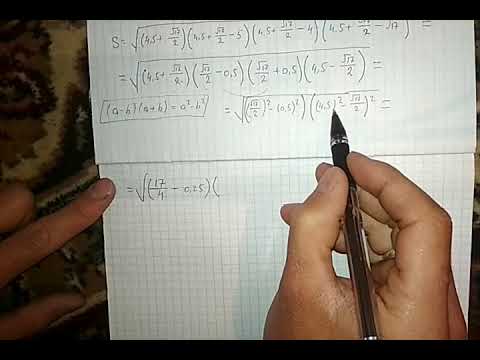 S = √(4,5 + √17/2)(4,5 + √17/2 − 5)(4,5 + √17/2 − 4)(4,5 + √17/2 − √17) =
= √(4,5 + √17/2)(√17/2 − 0,5)(√17/2 + 0,5)(4,5 − √17/2) =
(a−b)(a+b) = a² − b² = √((√17/2)² − (0,5)²)((4,5)² − √17/2)² =
= √(17/4 − 0,25)(